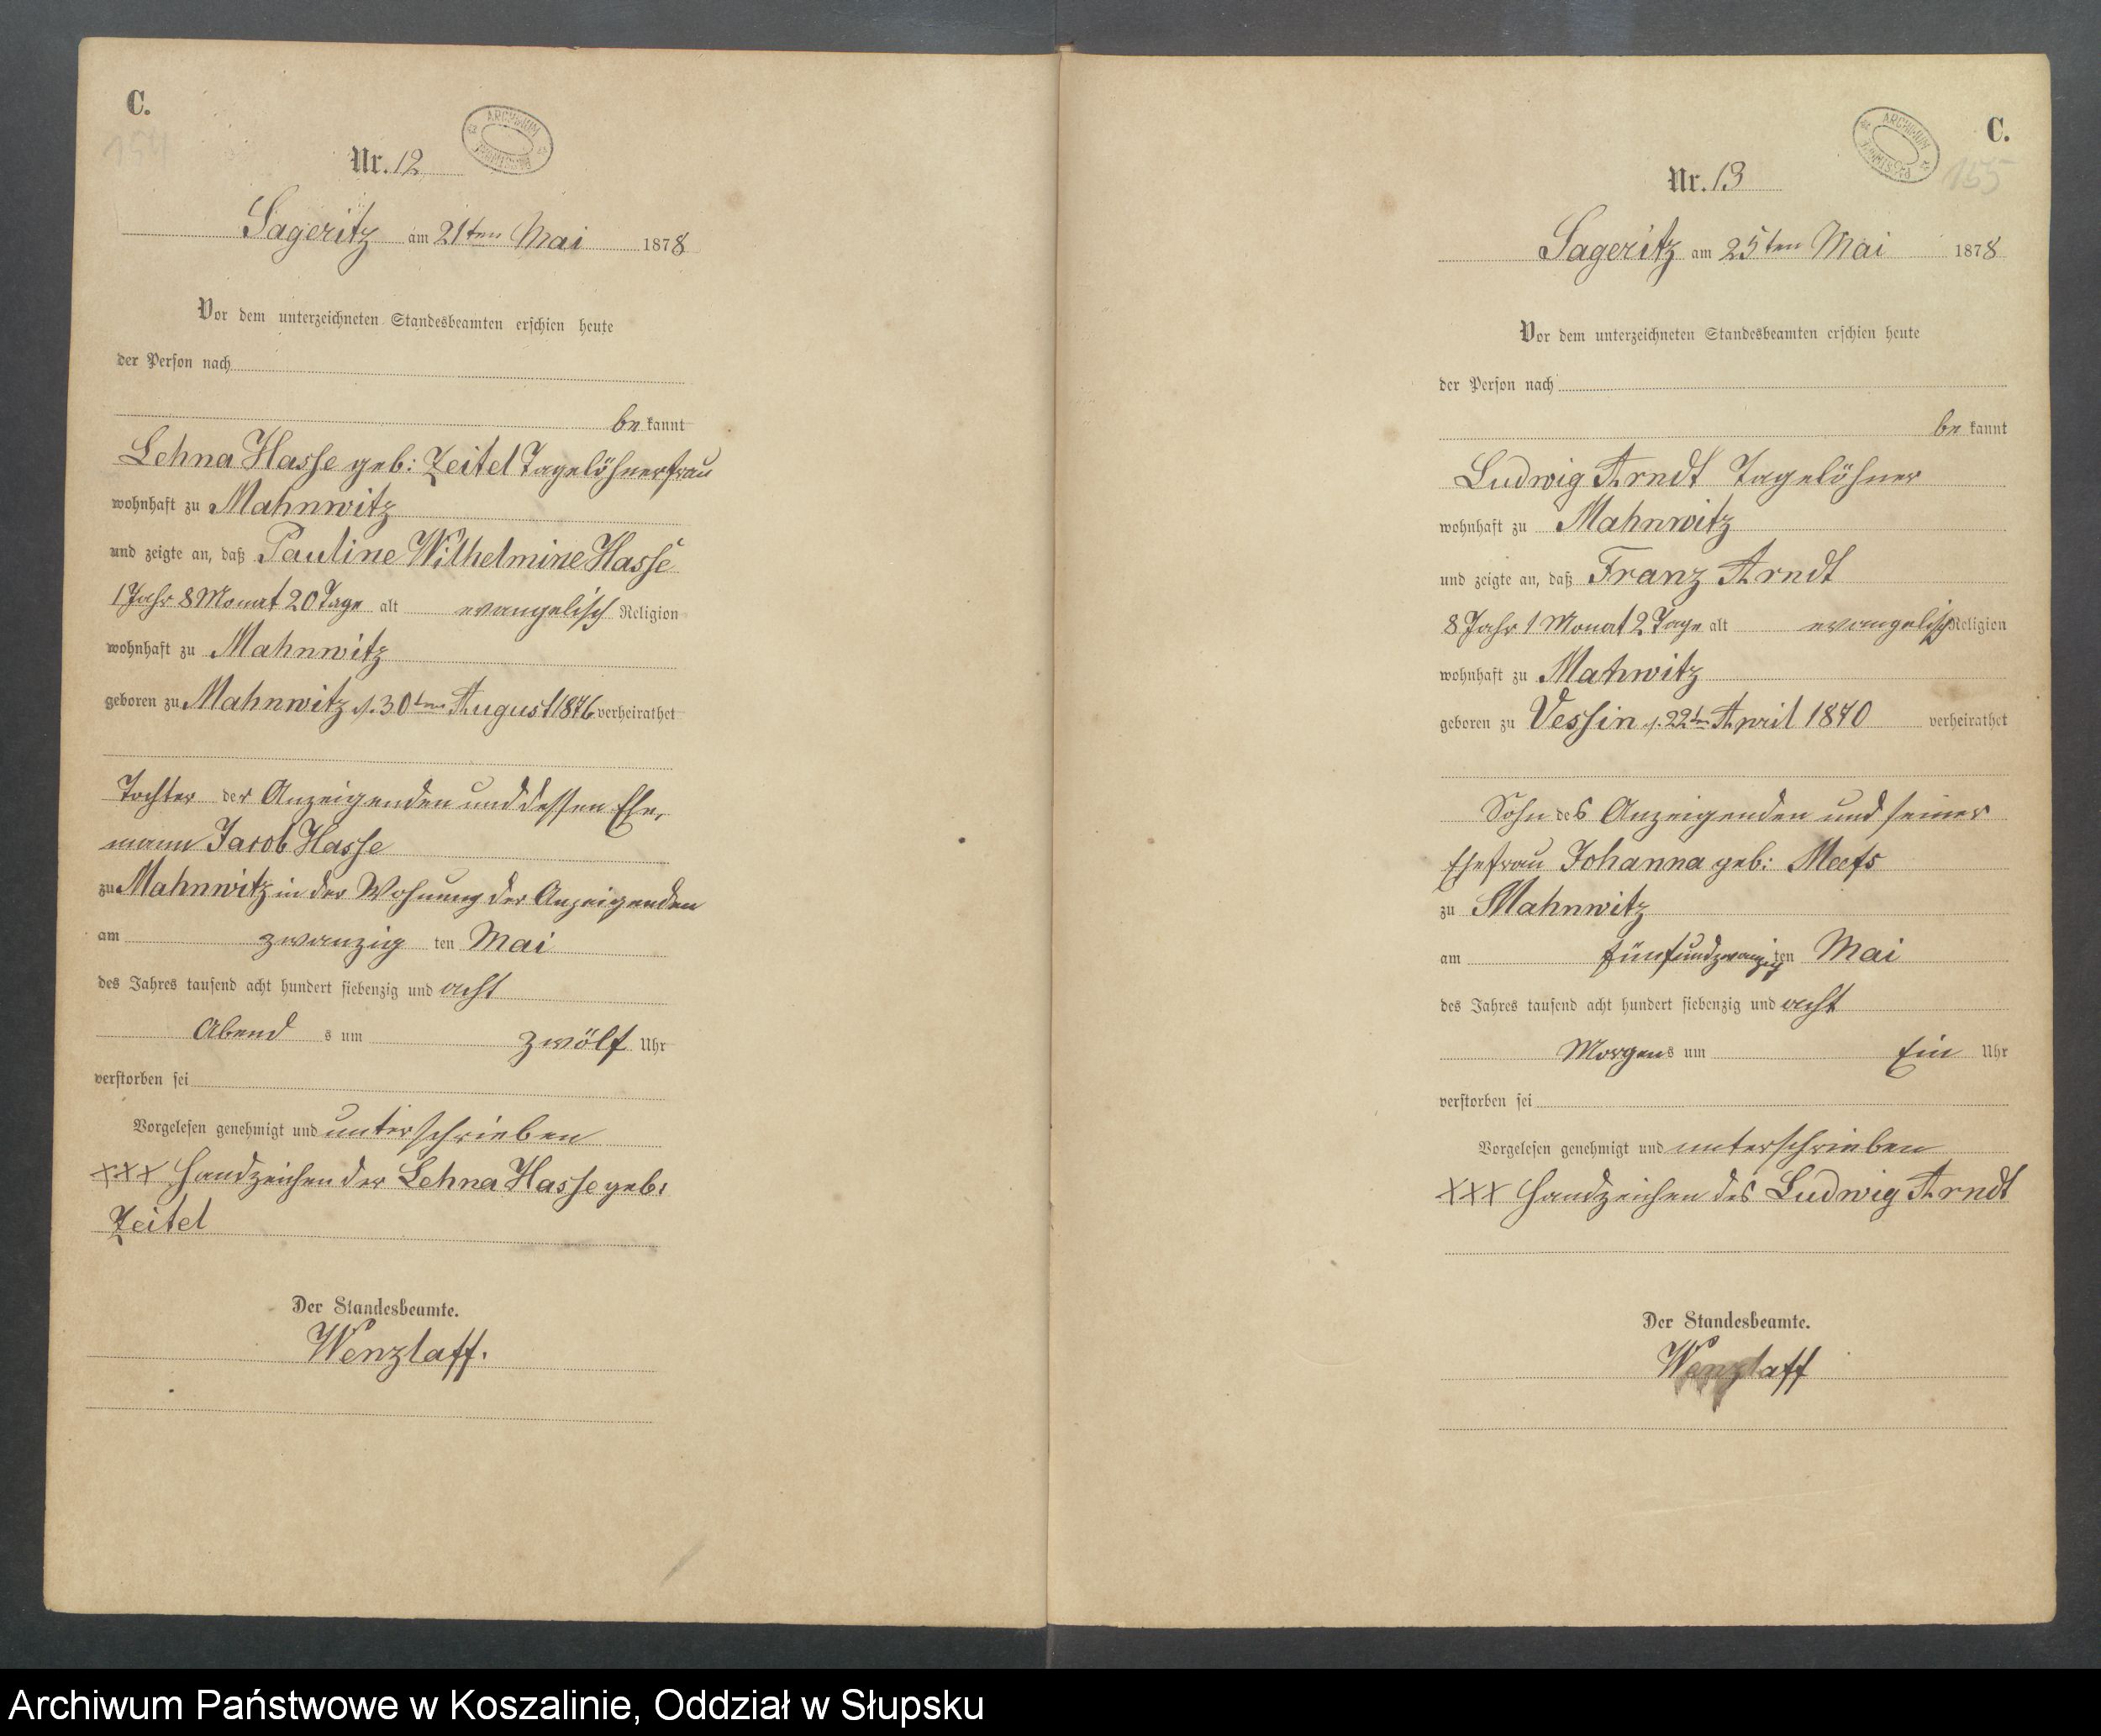 C.
154
Nr. 12
ARCHIWUM PAŃSTWOWE
Sageritz am 21ten Mai 1878
Vor dem unterzeichneten Standesbeamten erschien heute
der Person nach
be kannt
Lehna Hasse geb: Zeitel Tagelöhnerfrau
wohnhaft zu Mahnwitz
und zeigte an, daß Pauline Wilhelmine Hasse
1 Jahr 8 Monat 20 Tage alt evangelisch Religion
wohnhaft zu Mahnwitz
geboren zu Mahnwitz d. 30ten August 1876 verheirathet
Tochter der Anzeigenden und dessen Ehe,
mann Jacob Hasse
zu Mahnwitz in der Wohnung der Anzeigenden
am zwanzig ten Mai
des Jahres tausend acht hundert siebenzig und acht
Abend s um zwölf Uhr
verstorben sei
Vorgelesen genehmigt und unterschrieben
XXX Handzeichen der Lehna Hasse geb:
Zeitel
Der Standesbeamte.
Wenzlaff.
C.
155
ARCHIWUM PAŃSTWOWE
Nr. 13
Sageritz am 25ten Mai 1878
Vor dem unterzeichneten Standesbeamten erschien heute
der Person nach
be kannt
Ludwig Arndt Tagelöhner
wohnhaft zu Mahnwitz
und zeigte an, daß Franz Arndt
8 Jahr 1 Monat 2 Tage alt evangelisch Religion
wohnhaft zu Mahwitz
geboren zu Vessin d. 22ten April 1870 verheirathet
Sohn des Anzeigenden und seiner
Ehefrau Johanna geb:
zu Mahnwitz
am fünfundzwanzig ten Mai
des Jahres tausend acht hundert siebenzig und acht
Morgens um Ein Uhr
verstorben sei
Vorgelesen genehmigt und unterschrieben
XXX Handzeichen des Ludwig Arndt
Der Standesbeamte.
Wenzlaff
Archiwum Państwowe w Koszalinie, Oddział w Słupsku